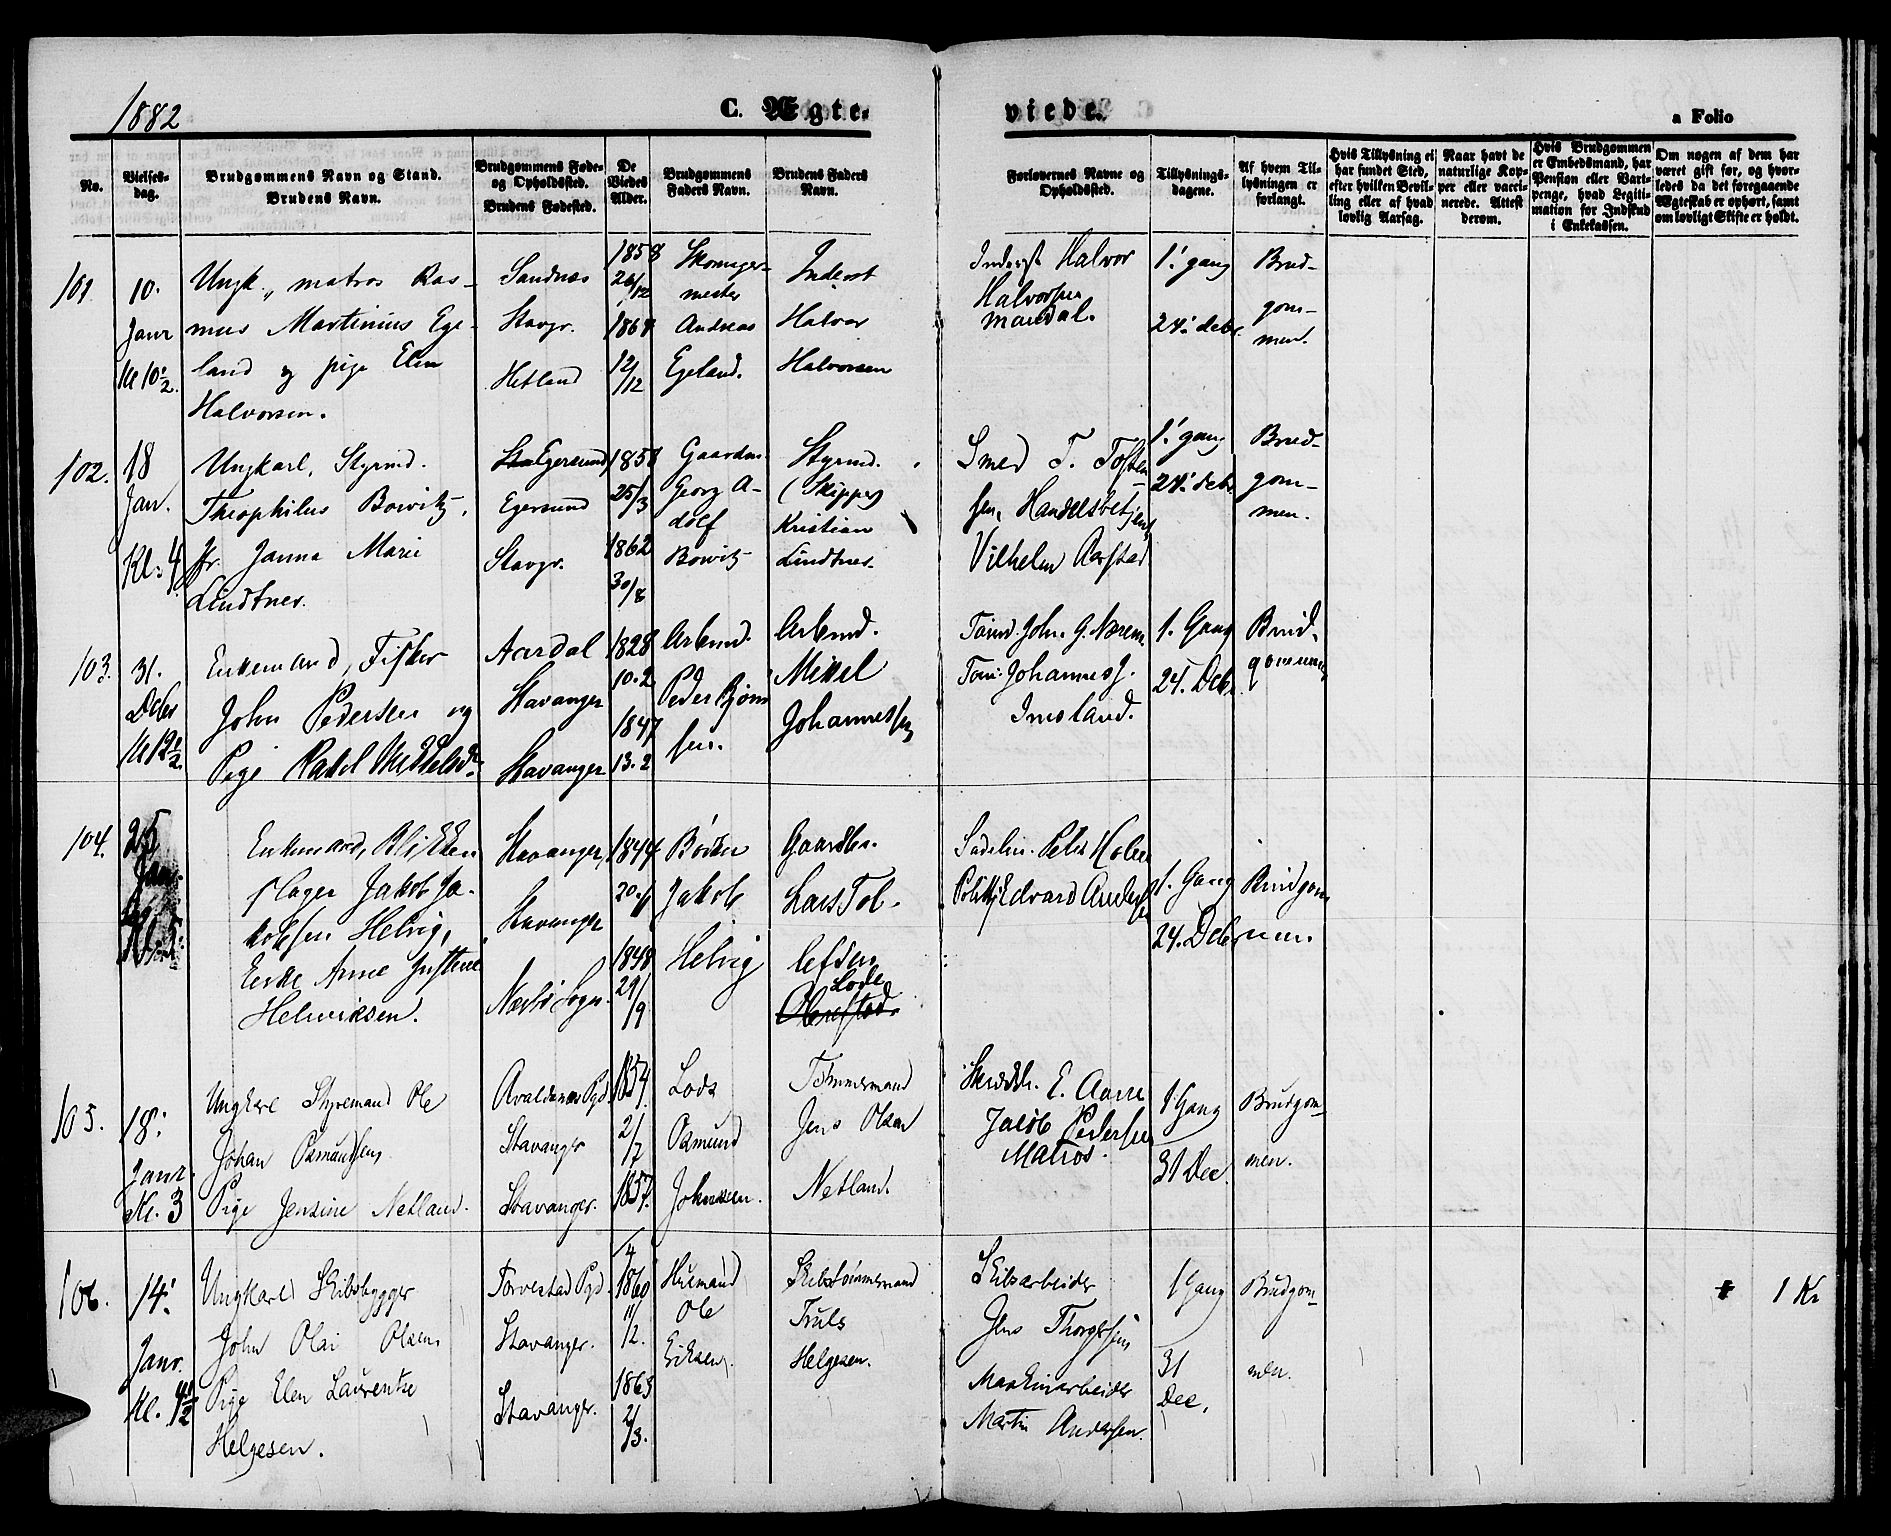 1882
C. Ægte-
viede.
a Folio
No.
Vielses-
dag.
Brudgommens Navn og Stand.
Brudens Navn.
Brudgommens Føde-
og Opholdssted.
Brudens Fødested.
De
Viedes
Alder.
Brudgommens
Faders Navn.
Brudens Faders
Navn.
Forlovernes Navne og
Opholdssted.
Tillysnings-
dagene.
Af hvem Til-
lysningen er
forlangt.
Hvis Tillysning ei
har fundet Sted,
efter hvilken Bevil-
ling eller af hvad
lovlig Aarsag.
Naar havt de
naturlige Kop-
per eller vacci-
nerede. Attest
derom.
Hvis Brudgommen
er Embedsmand, har
Pension eller Vart-
penge, hvad Legiti-
mation for Indskud
i Enkekassen.
Om nogen af dem har
været gift før, og hvor-
ledes da det foregaaende
Ægteskab er ophørt, samt
om lovligt Skifte er holdt.
101
10.
Janr
Kl 10½.
Ungk., matros Ras-
mus Martinius Ege-
land og pige Elen
Halvorsen.
Sandnes
Stavgr.
Hetland
1858
1861
12/12
Skomager-
mester
Andreas
Egeland.
Inderst
Halvor
Halvorsen
Inderst Halvor
Halvorsen
Mandal.
1.' gang
24.' debr.
Brud-
gom-
men.
102.
18
Jan.
Kl: 4
Ungkarl, Styrmd.
Theophilus Bowitz,
Jfr. Janna Marie
Lindtner.
Egersund
Egersund
Stavgr.
1851
25/3
1862
30/8
Gaardm.
Georg A-
dolf
Bowitz
Styrmd.
(Skipper)
Kristian
Lindtner.
Smed T. Tosten-
sen, Handelsbetjent
Vilhelm Aarstad
1.' gang
24.' debr
Brud-
gom-
men.
103.
31.
Dcbr
Kl 12½.
Enkemand, Fisker
John Pedersen og
Pige Rakel Mikkelsdr.
Aardal
Stavanger
Stavanger
1828
10.2
1847
13.2
Arbmd.
Peder Bjørn
sen.
Arbmd.
Mikel
Johannessen
Tømd. John. G. Nærem
Tøm: Johannes J.
Imsland.
1. Gang
24. Dcbr
Brud-
gommen
104.
25
Jan.
Kl. 5.
Enkemand, Blikken
slager Jakob Ja-
kobsen Helvig,
Enke Anne Justine
Helmiksen.
Stavanger,
Stavanger
Nærbø Sogn.
1844
1848
29/9
Bødker
Jakob
Helvig
Gaardbr.
Lars Tol-
lefsen
Lode
Sadelm. Peter Holm
Politbj Edvard Anders
1. Gang
24. Dcbr
Brudgom
men.
105.
18.'
Janr.
Kl. 3
Ungkarl Styremand Ole
Johan Osmundsen,
Pige Jensine Netland.
Avaldsnæs Pgd.
Stavanger
Stavanger.
1854.
2/7
1857.
Lods
Osmund
Johnsen.
Tømmermand
Jens Olsen
Netland.
Skrædr. E. Aane
Jacob Pedersen
Matros.
1 Gang
31 Dec.
Brudgom-
men.
106.
14.'
Janr.
Kl. 4½
Ungkarl Skibsbygger
John Olai Olsen,
Pige Elen Laurentse
Helgesen.
Torvestad Pgd.
Stavanger.
Stavanger.
1860
11/12.
1863
2/3.
Husmand
Ole
Eriksen.
Skibstømmermand
Truls
Helgesen.
Skibsarbeider
Jens Thorgersen
Maskinarbeider
Martin Andersen.
1 Gang
31
Dec.
Brudgom-
men.
1 Kr